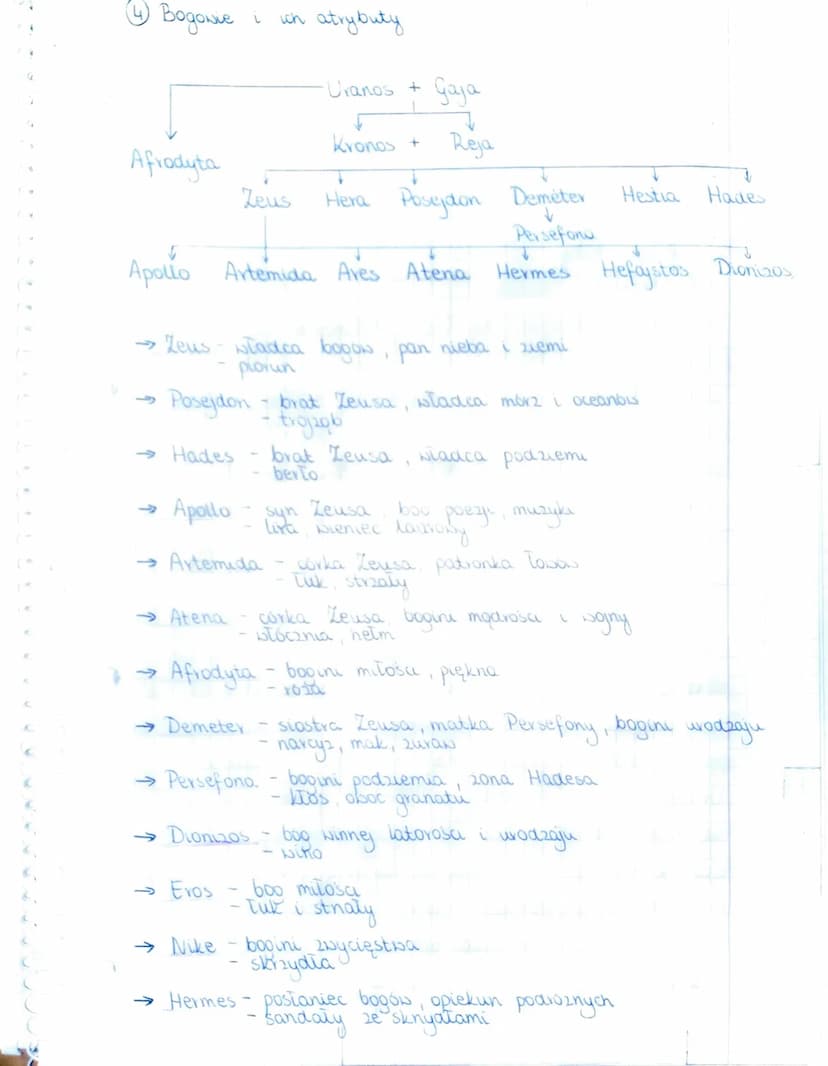 4 Bogowie i ich atrybuty
Uranos + Gaja
Kronos + Reja
Afrodyta
Zeus Hera Posejdon Demeter Hestia Hades
Persefona
Apollo Artemida Ares Atena Hermes Hefajstos Dionizos
→ Zeus - władca bogów, pan nieba i ziemi
- piorun
→ Posejdon - brat Zeusa, władca mórz i oceanów
- trójząb
→ Hades - brat Zeusa, władca podziemi
- berło
→ Apollo - syn Zeusa, bóg poezji, muzyki
- lira, wieniec laurowy
→ Artemida - córka Zeusa, patronka łowów
- łuk, strzały
→ Atena - córka Zeusa, bogini mądrości i wojny
- włócznia, hełm
→ Afrodyta - bogini miłości, piękna
- róża
→ Demeter - siostra Zeusa, matka Persefony, bogini urodzaju
- narcyz, mak, żuraw
→ Persefona - bogini podziemia, żona Hadesa
- kłos, owoc granatu
→ Dionizos - bóg winnej latorośli i urodzaju
- wino
→ Eros - bóg miłości
- łuk i strzały
→ Nike - bogini zwycięstwa
- skrzydła
→ Hermes - posłaniec bogów, opiekun podróżnych
- sandały ze skrzydłami